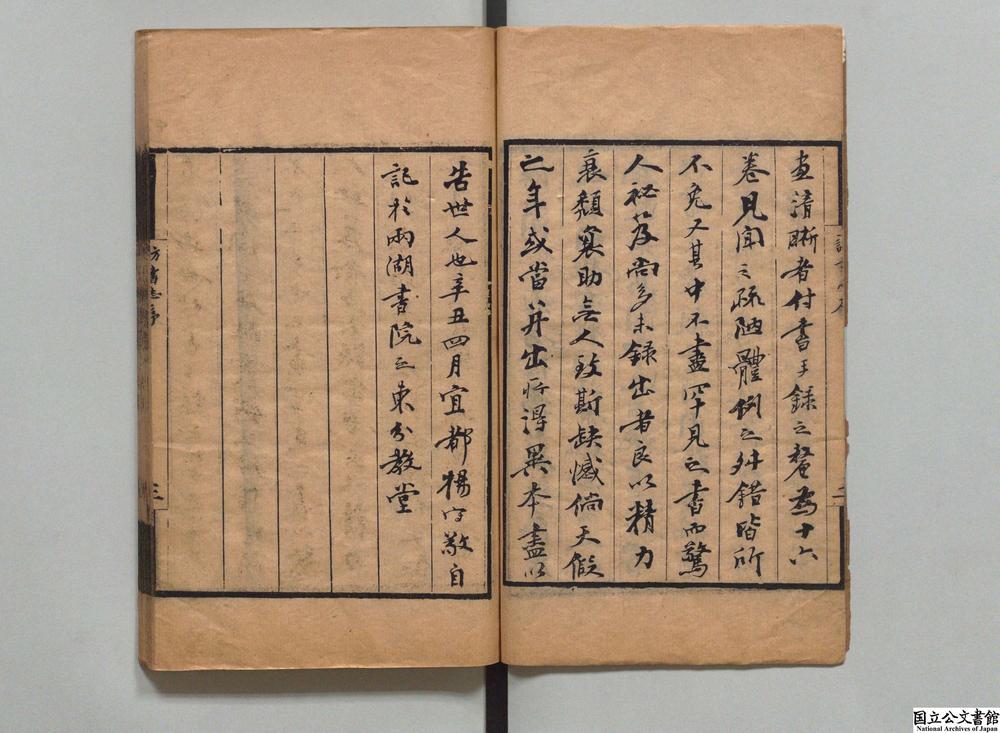 畫清晰者付書手録之釐為十六
卷見聞之疏陋體例之舛錯皆所
不免又其中不盡罕見之書而驚
人祕笈尚多未録出者良以精力
衰頹襄助無人致斯缺憾倘天假
之年或當并出所得異本盡以
告世人也辛丑四月宜都楊守敬自
記於兩湖書院之東分教堂
二
方書志序
三
国立公文書館
National Archives of Japan